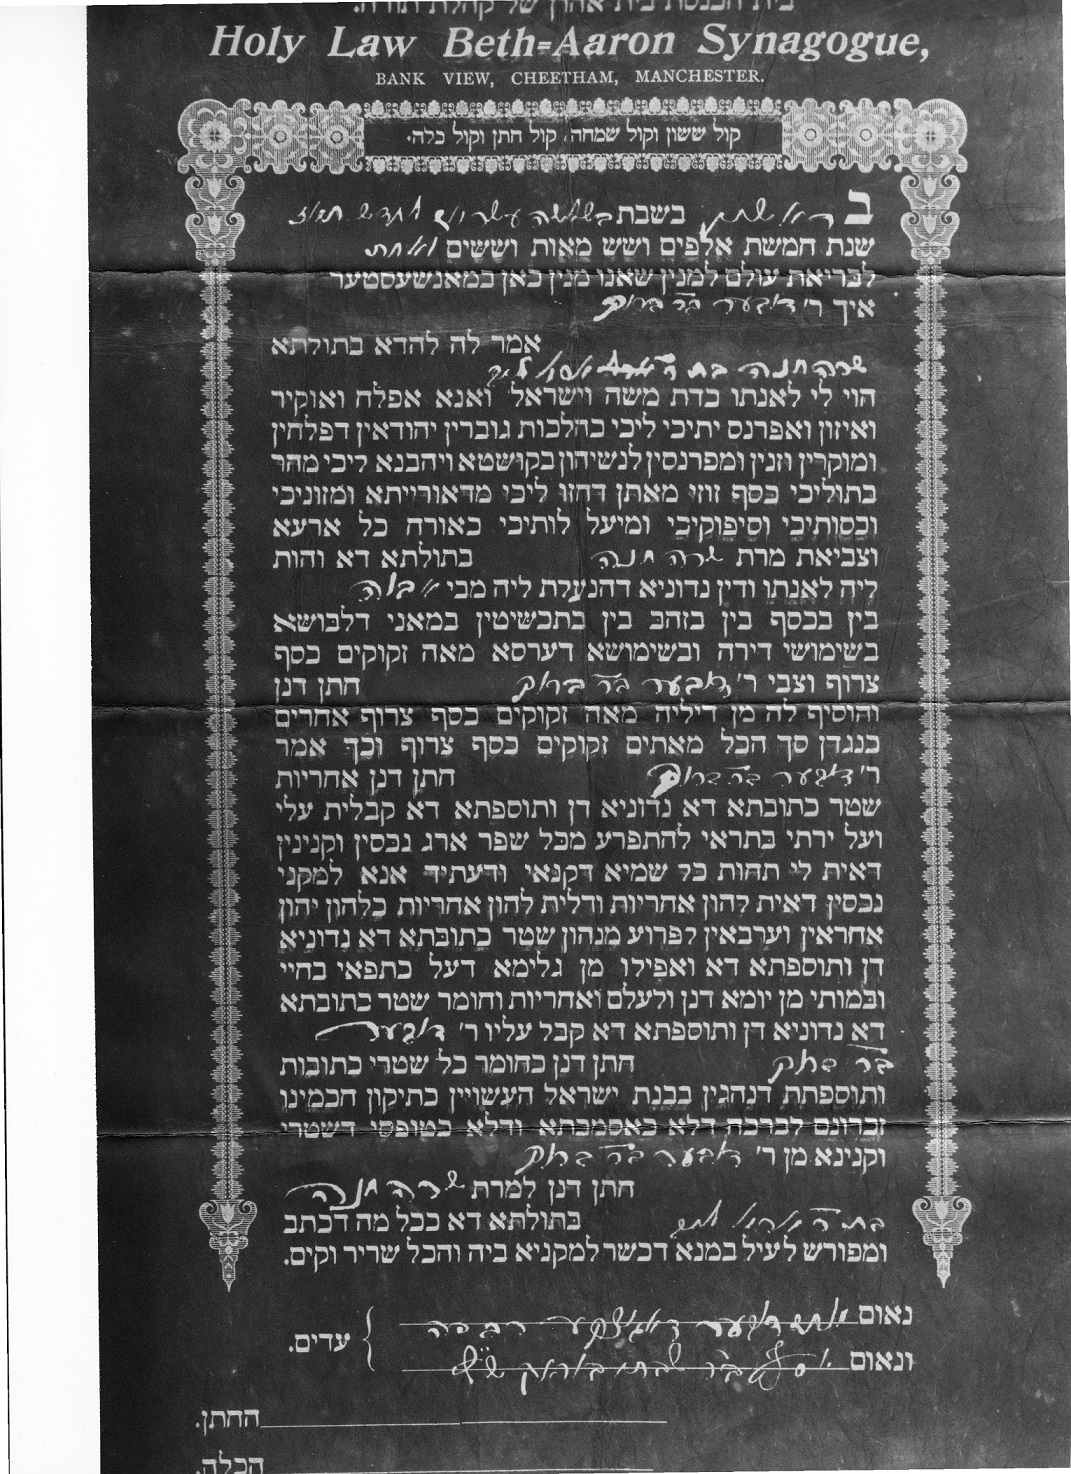 בית הכנסת בית אהרן של קהלת תורה.
Holy Law Beth=Aaron Synagogue,
BANK VIEW, CHEETHAM, MANCHESTER.
קול ששון וקול שמחה, קול חתן וקול כלה.
ב בשבת תמוז
שנת חמשת אלפים ושש מאות וששים ואחת
לבריאת עולם למנין שאנו מנין כאן במאנשעסטער
איך ר'
אמר לה להדא בתולתא
שרה חנה בת
הוי לי לאנתו כדת משה וישראל ואנא אפלח ואוקיר
ואיזון ואפרנס יתיכי ליכי כהלכות גוברין יהודאין דפלחין
ומוקרין וזנין ומפרנסין לנשיהון בקושטא ויהבנא ליכי מהר
בתוליכי כסף זוזי מאתן דחזו ליכי מדאורייתא ומזוניכי
וכסותיכי וסיפוקיכי ומיעל לותיכי כאורח כל ארעא
וצביאת מרת שרה חנה בתולתא דא והות
ליה לאנתו ודין נדוניא דהנעלת ליה מבי אבוה
בין בכסף בין בזהב בין בתכשיטין במאני דלבושא
בשימושי דירה ובשימושא דערסא מאה זקוקים כסף
צרוף וצבי ר' חתן דנן
והוסיף לה מן דיליה מאה זקוקים כסף צרוף אחרים
כנגדן סך הכל מאתים זקוקים כסף צרוף וכך אמר
ר' חתן דנן אחריות
שטר כתובתא דא נדוניא דן ותוספתא דא קבלית עלי
ועל ירתי בתראי להתפרע מכל שפר ארג נכסין וקנינין
דאית לי תחות כל שמיא דקנאי ודעתיד אנא למקני
נכסין דאית להון אחריות ודלית להון אחריות כלהון יהון
אחראין וערבאין לפרוע מנהון שטר כתובתא דא נדוניא
דן ותוספתא דא ואפילו מן גלימא דעל כתפאי בחיי
ובמותי מן יומא דנן ולעלם ואחריות וחומר שטר כתובתא
דא נדוניא דן ותוספתא דא קבל עליו ר'
חתן דנן כחומר כל שטרי כתובות
ותוספתת דנהגין בבנת ישראל העשויין כתיקון חכמינו
זכרונם לברכה דלא כאסמכתא ודלא כטופסי דשטרי
וקנינא מן ר'
חתן דנן למרת שרה חנה
בתולתא דא ככל מה דכתב
ומפורש לעיל במנא דכשר למקניא ביה והכל שריר וקים.
נאום
עדים.
ונאום
החתן.
הכלה.